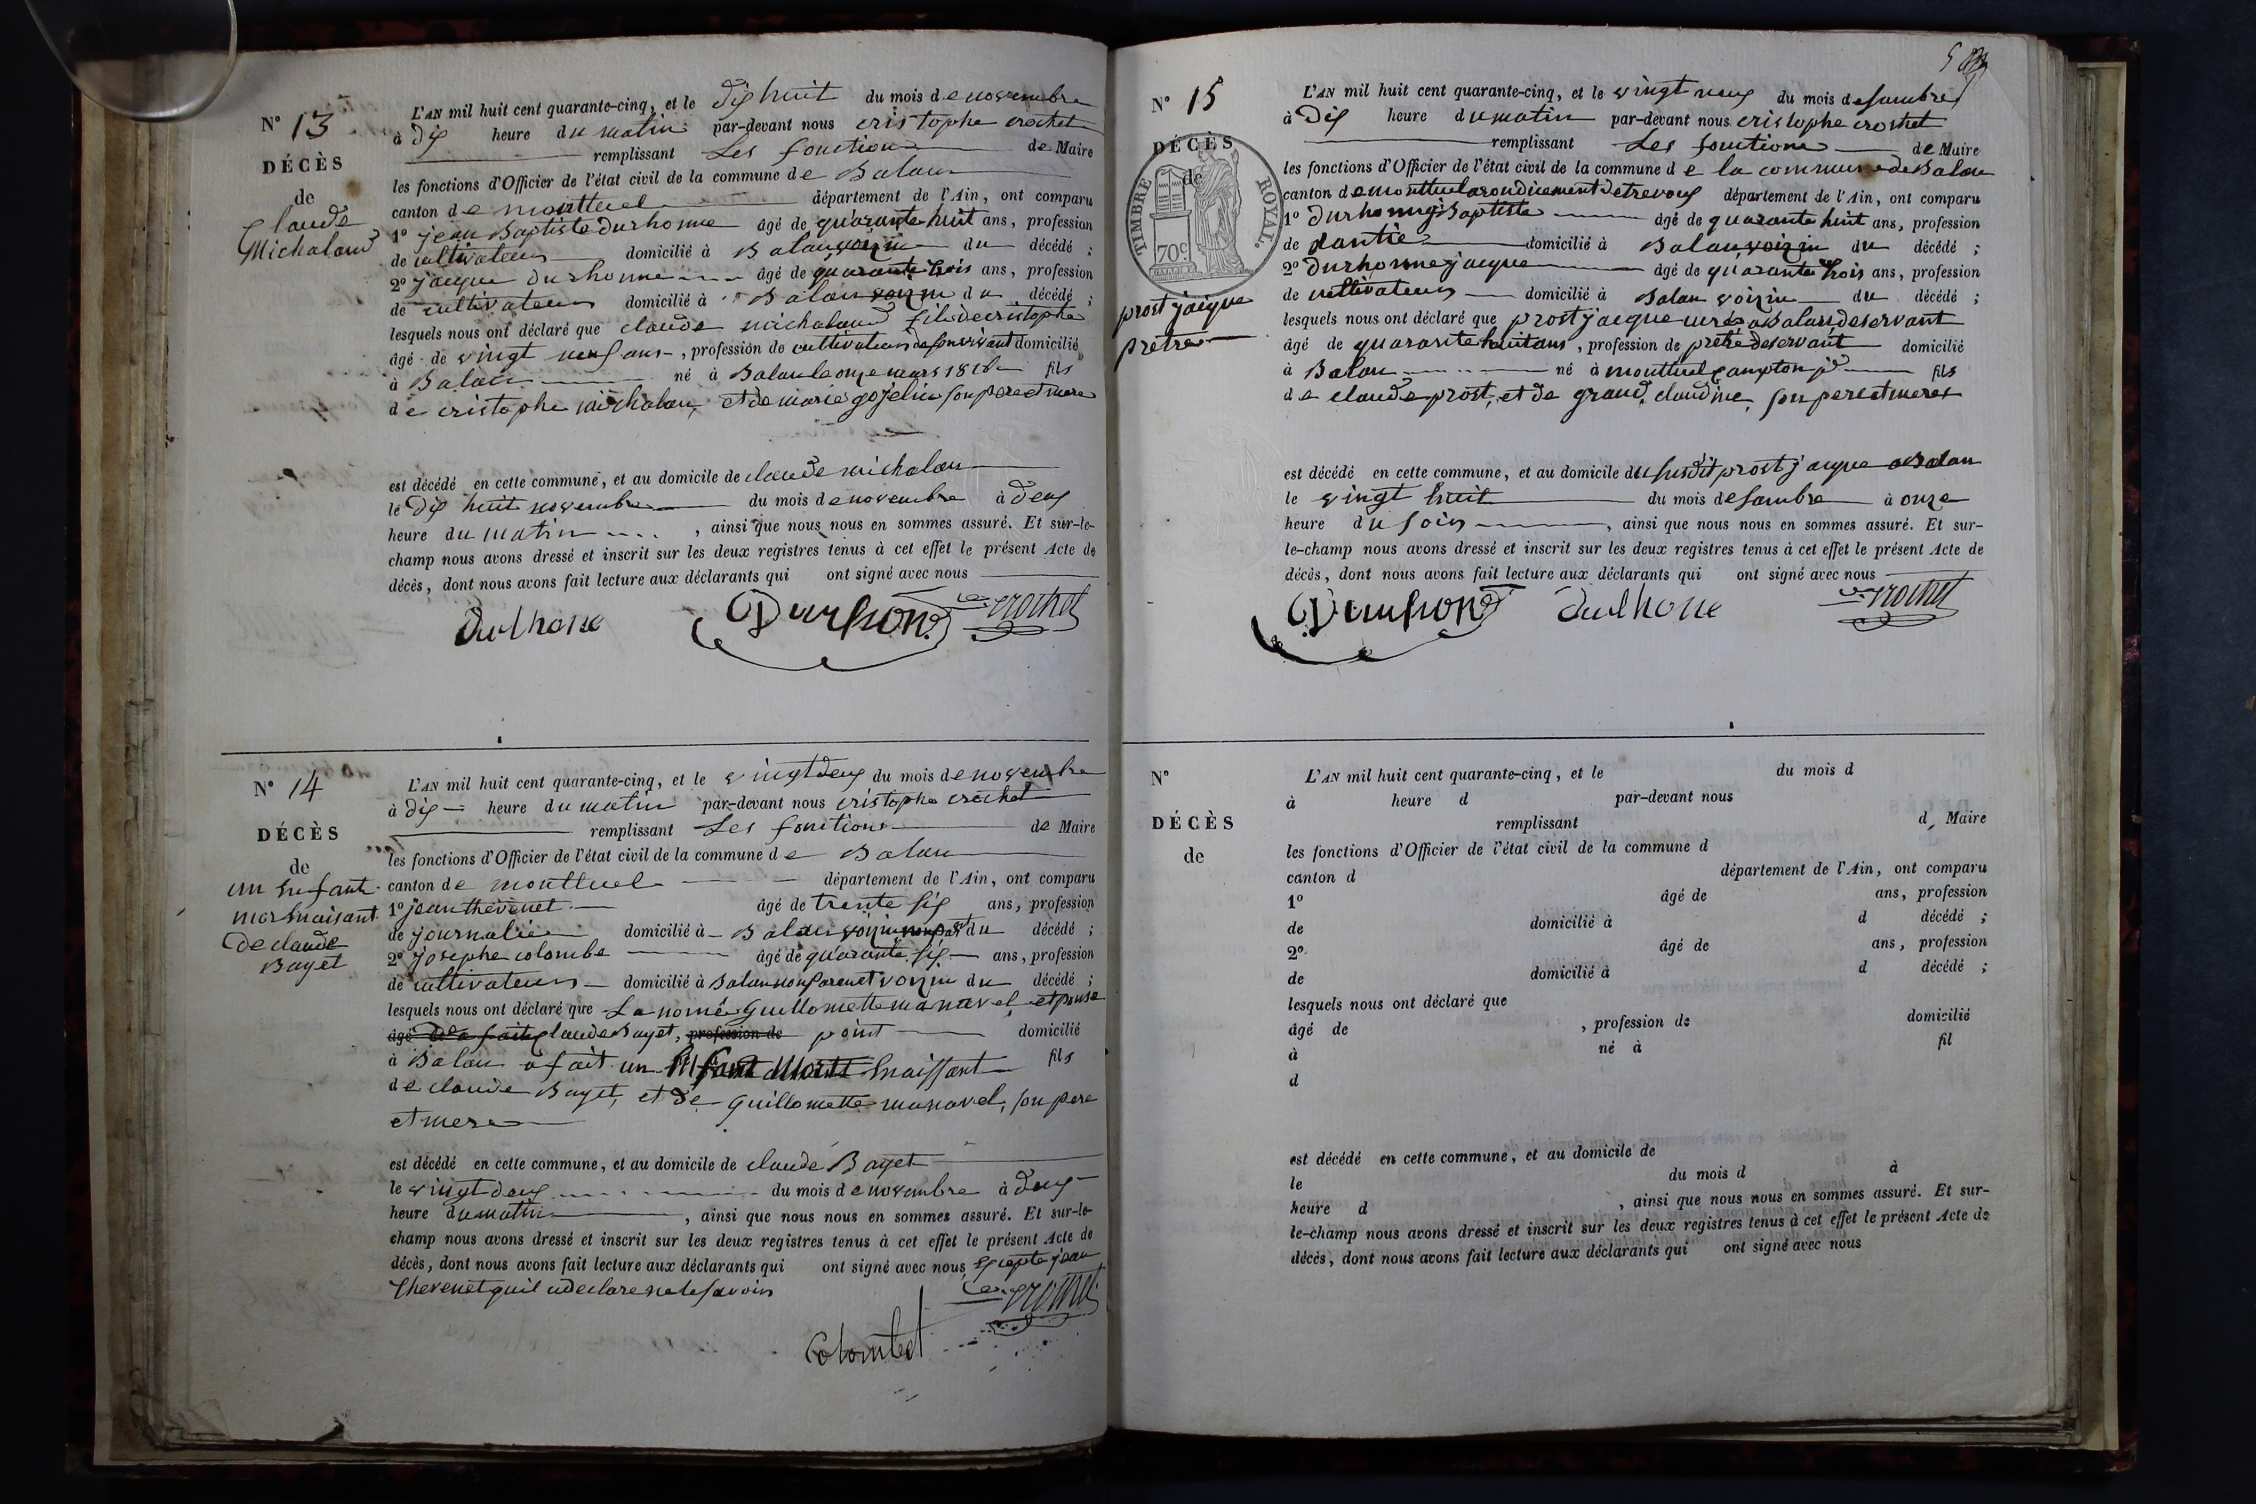 N° 13
DÉCÈS
de
Claude
Michaland
L'AN mil huit cent quarante-cinq, et le dix huit du mois de novembre
à dix heure du matin par-devant nous cristophe crochet
remplissant Les fonction de Maire
les fonctions d'Officier de l'état civil de la commune de Balan
canton de montluel département de l'Ain, ont comparu
1° jean Baptiste durhonne âgé de quarante huit ans, profession
de cultivateur domicilié à Balan voizin du décédé ;
2° jacque durhonne âgé de quarante trois ans, profession
de cultivateur domicilié à Balan voizin du décédé ;
lesquels nous ont déclaré que claude michaland fils de cristophe
âgé de vingt neuf ans, profession de cultivateur de son vivant domicilié
à Balan né à Balan le onze mars 1816 fils
de cristophe michalan, et de marie gojelin son pere et mere
est décédé en cette commune, et au domicile de claude michalan
le dix huit novembre du mois de novembre à deux
heure du matin , ainsi que nous nous en sommes assuré. Et sur-le-
champ nous avons dressé et inscrit sur les deux registres tenus à cet effet le présent Acte de
décès, dont nous avons fait lecture aux déclarants qui ont signé avec nous
Durhone Durhone Crochet
N° 14
DÉCÈS
de
un Enfant
mor naisant
De claude
Bayet
L'AN mil huit cent quarante-cinq, et le vingt deux du mois de novembre
à dix heure du matin par-devant nous cristophe crochet
remplissant Les fonctions de Maire
les fonctions d'Officier de l'état civil de la commune de Balan
canton de montluel département de l'Ain, ont comparu
1° jean thevenet âgé de trente six ans, profession
de journalier domicilié à Balan voizin du décédé ;
2° josephe colombe âgé de quarante six ans, profession
de cultivateur domicilié à Balan non parent voizin du décédé ;
lesquels nous ont déclaré que La nomé guillomette manavel, epouse
âgé de claude Bayet, profession de point domicilié
à Balan a fait un Enfant Mort naissant fils
de claude Bayet, et de guillomette manavel, son pere
et mere
est décédé en cette commune, et au domicile de claude Bayet
le vingt deux du mois de novembre à deux
heure du matin , ainsi que nous nous en sommes assuré. Et sur-le-
champ nous avons dressé et inscrit sur les deux registres tenus à cet effet le présent Acte de
décès, dont nous avons fait lecture aux déclarants qui ont signé avec nous Excepte jean
Thevenet quil a declare ne le savoir
Crochet
Colombet
N° 15
DÉCÈS
de
TIMBRE ROYAL.
70c
prost jacque
pretre
L'AN mil huit cent quarante-cinq, et le vingt neuf du mois desambre
à Dix heure du matin par-devant nous cristophe crochet
remplissant Les fonctions de Maire
les fonctions d'Officier de l'état civil de la commune de la commune de Balan
canton de montluel arondicement de trevoux département de l'Ain, ont comparu
1° durhonne j Baptiste âgé de quarante huit ans, profession
de rantié domicilié à Balan voizin du décédé ;
2° durhonne jacque âgé de quarante trois ans, profession
de cultivateur domicilié à Balan voizin du décédé ;
lesquels nous ont déclaré que prost jacque curé a Balan deservant
âgé de quarante huit ans, profession de pretre deservant domicilié
à Balan né à montluel canton jd fils
de claude prost, et de grand, claudine, son pere et mere
est décédé en cette commune, et au domicile du susdit prost jacque a Balan
le vingt huit du mois desambre à onze
heure du soir , ainsi que nous nous en sommes assuré. Et sur-
le-champ nous avons dressé et inscrit sur les deux registres tenus à cet effet le présent Acte de
décès, dont nous avons fait lecture aux déclarants qui ont signé avec nous
Durhone Durhone Crochet
N°
DÉCÈS
de
L'AN mil huit cent quarante-cinq, et le du mois d
à heure d par-devant nous
remplissant d Maire
les fonctions d'Officier de l'état civil de la commune d
canton d département de l'Ain, ont comparu
1° âgé de ans, profession
de domicilié à d décédé ;
2° âgé de ans, profession
de domicilié à d décédé ;
lesquels nous ont déclaré que
âgé de , profession de domicilié
à né à fil
d
est décédé en cette commune, et au domicile de
le du mois d à
heure d , ainsi que nous nous en sommes assuré. Et sur-
le-champ nous avons dressé et inscrit sur les deux registres tenus à cet effet le présent Acte de
décès, dont nous avons fait lecture aux déclarants qui ont signé avec nous